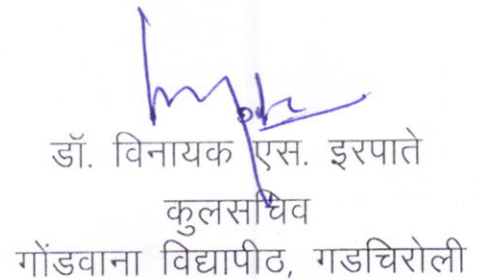 डॉ. विनायक एस. इरपाते
कुलसचिव
गोंडवाना विद्यापीठ, गडचिरोली